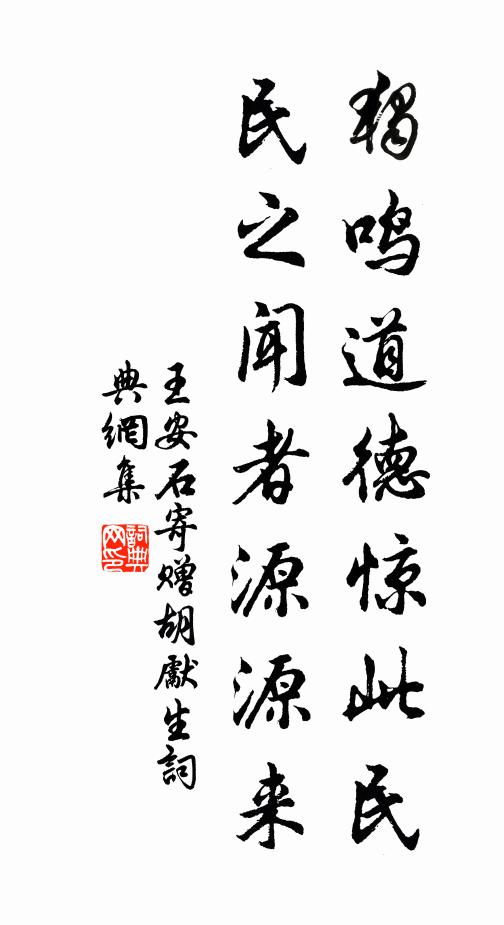 独鸣道德惊此民
民之闻者源源来
王安石寄赠胡献生词
典網集
詞典网印